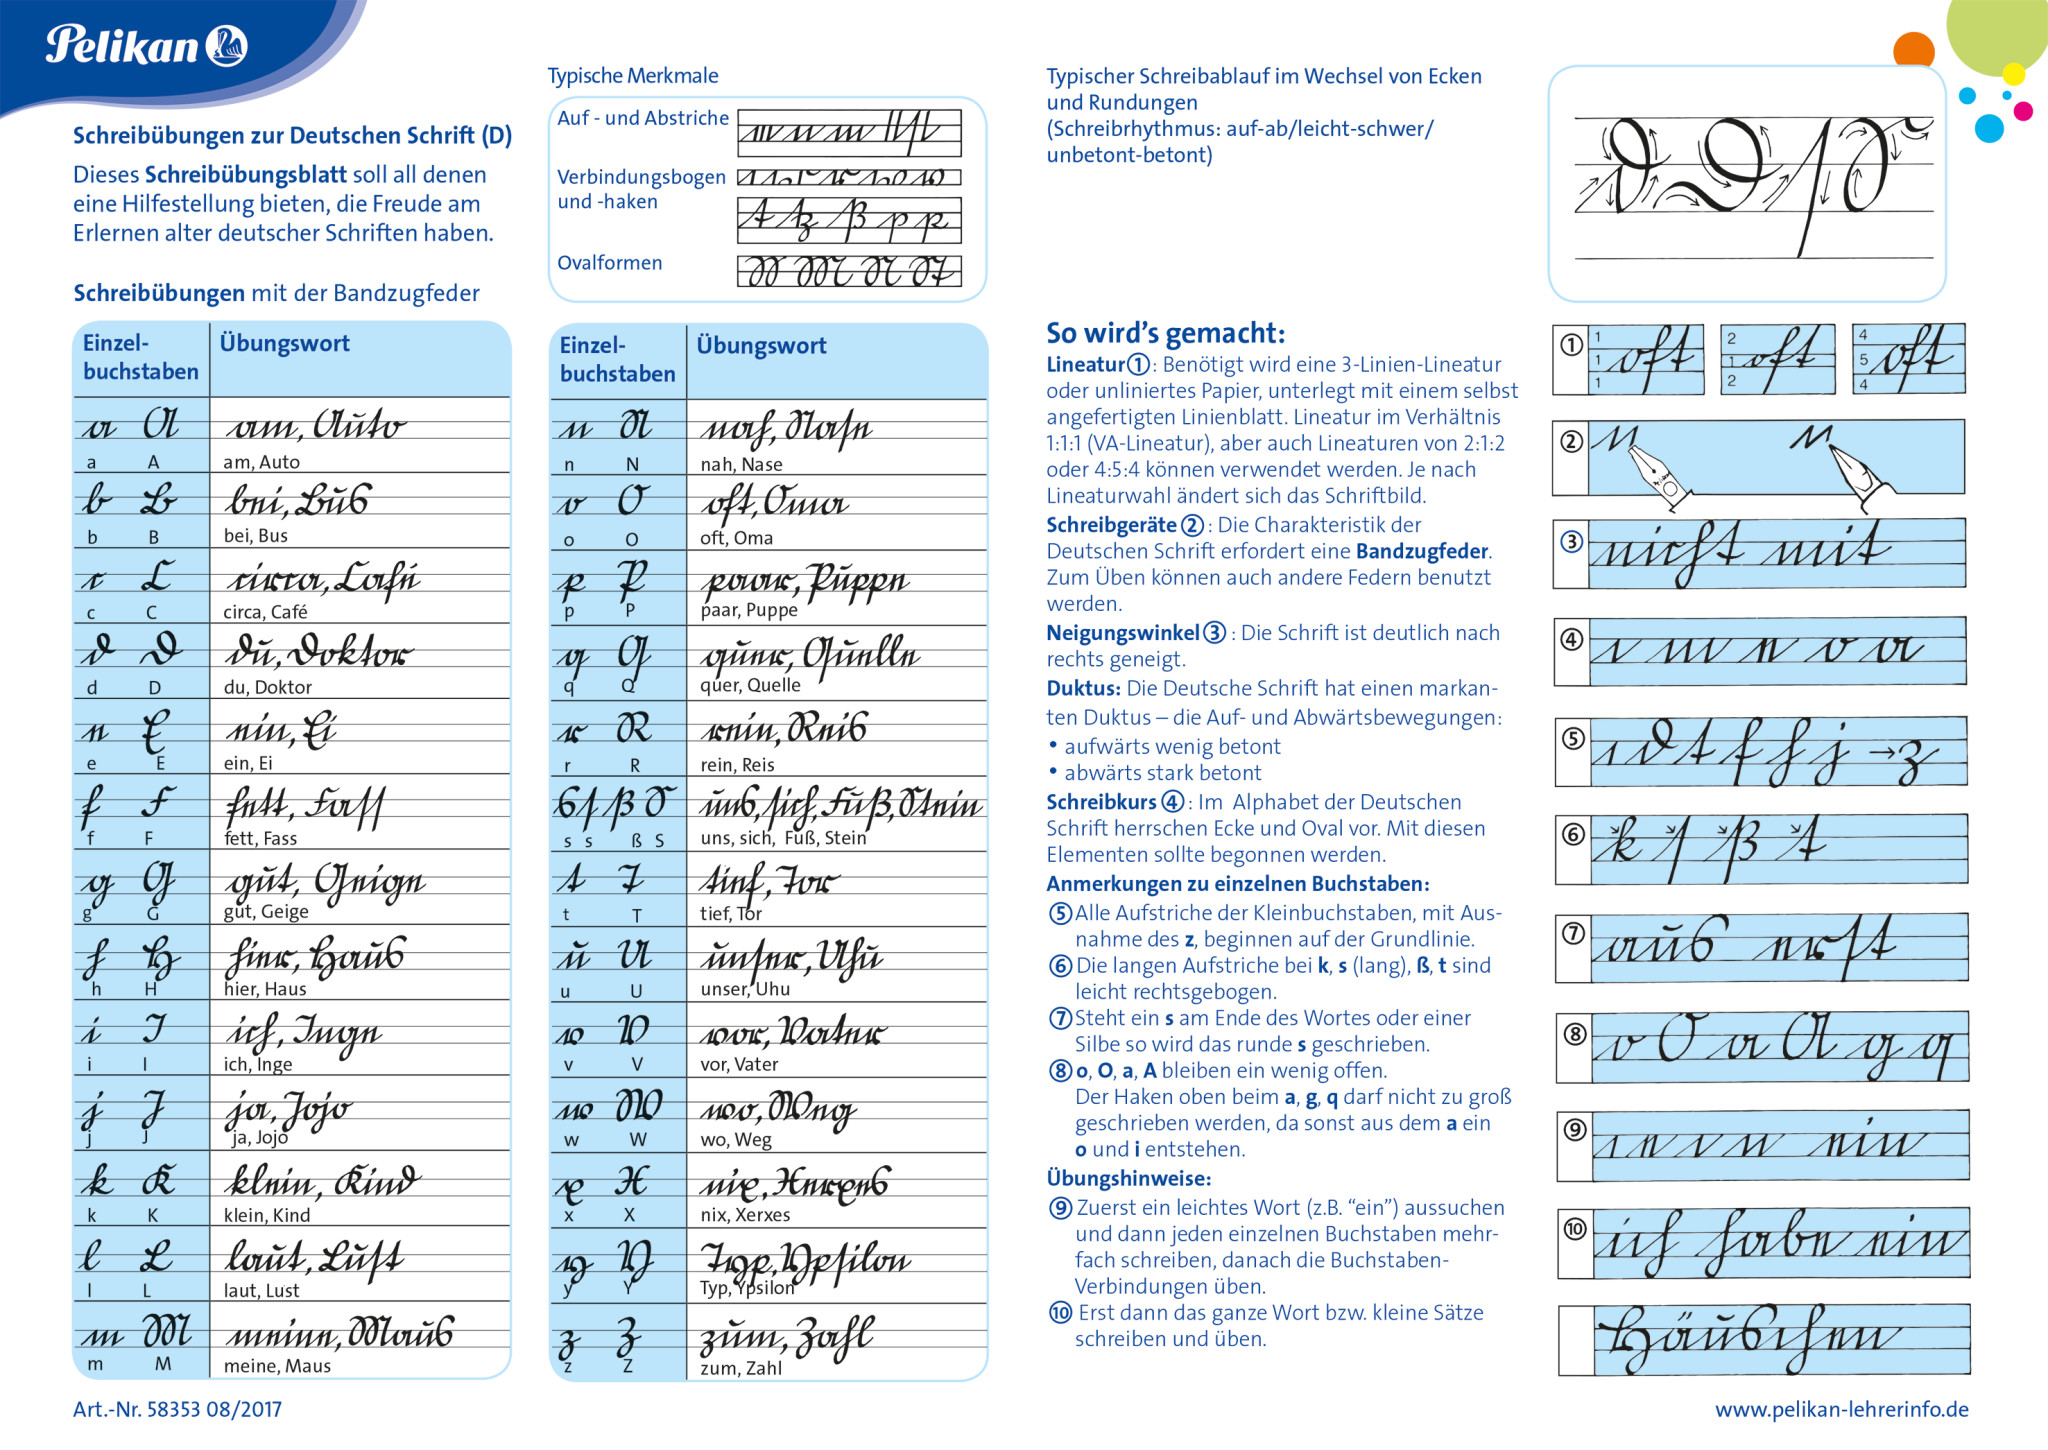 Pelikan
Schreibübungen zur Deutschen Schrift (D)
Dieses Schreibübungsblatt soll all denen
eine Hilfestellung bieten, die Freude am
Erlernen alter deutscher Schriften haben.
Schreibübungen mit der Bandzugfeder
Einzel-
buchstaben
Übungswort
a A am, Auto
a A am, Auto
b B bei, Bus
b B bei, Bus
c C circa, Café
c C circa, Café
d D du, Doktor
d D du, Doktor
e E ein, Ei
e E ein, Ei
f F fett, Fass
f F fett, Fass
g G gut, Geige
g G gut, Geige
h H hier, Haus
h H hier, Haus
i I ich, Inge
i I ich, Inge
j J ja, Jojo
j J ja, Jojo
k K klein, Kind
k K klein, Kind
l L laut, Lust
l L laut, Lust
m M meine, Maus
m M meine, Maus
Art.-Nr. 58353 08/2017
Typische Merkmale
Auf - und Abstriche
Verbindungsbogen
und -haken
t tz ß p p
Ovalformen
Einzel-
buchstaben
Übungswort
n N nah, Nase
n N nah, Nase
o O oft, Oma
o O oft, Oma
p P paar, Puppe
p P paar, Puppe
q Q quer, Quelle
q Q quer, Quelle
r R rein, Reis
r R rein, Reis
s ſ ß S uns, sich, Fuß, Stein
s s ß S uns, sich, Fuß, Stein
t T tief, Tor
t T tief, Tor
u U unser, Uhu
u U unser, Uhu
v V vor, Vater
v V vor, Vater
w W wo, Weg
w W wo, Weg
x X nix, Xerxes
x X nix, Xerxes
y Y Typ, Ypsilon
y Y Typ, Ypsilon
z Z zum, Zahl
z Z zum, Zahl
Typischer Schreibablauf im Wechsel von Ecken
und Rundungen
(Schreibrhythmus: auf-ab/leicht-schwer/
unbetont-betont)
d D ſ S
So wird’s gemacht:
Lineatur①: Benötigt wird eine 3-Linien-Lineatur
oder unliniertes Papier, unterlegt mit einem selbst
angefertigten Linienblatt. Lineatur im Verhältnis
1:1:1 (VA-Lineatur), aber auch Lineaturen von 2:1:2
oder 4:5:4 können verwendet werden. Je nach
Lineaturwahl ändert sich das Schriftbild.
Schreibgeräte②: Die Charakteristik der
Deutschen Schrift erfordert eine Bandzugfeder.
Zum Üben können auch andere Federn benutzt
werden.
Neigungswinkel③: Die Schrift ist deutlich nach
rechts geneigt.
Duktus: Die Deutsche Schrift hat einen markan-
ten Duktus – die Auf- und Abwärtsbewegungen:
• aufwärts wenig betont
• abwärts stark betont
Schreibkurs④: Im Alphabet der Deutschen
Schrift herrschen Ecke und Oval vor. Mit diesen
Elementen sollte begonnen werden.
Anmerkungen zu einzelnen Buchstaben:
⑤Alle Aufstriche der Kleinbuchstaben, mit Aus-
nahme des z, beginnen auf der Grundlinie.
⑥Die langen Aufstriche bei k, s (lang), ß, t sind
leicht rechtsgebogen.
⑦Steht ein s am Ende des Wortes oder einer
Silbe so wird das runde s geschrieben.
⑧o, O, a, A bleiben ein wenig offen.
Der Haken oben beim a, g, q darf nicht zu groß
geschrieben werden, da sonst aus dem a ein
o und i entstehen.
Übungshinweise:
⑨Zuerst ein leichtes Wort (z.B. “ein”) aussuchen
und dann jeden einzelnen Buchstaben mehr-
fach schreiben, danach die Buchstaben-
Verbindungen üben.
⑩ Erst dann das ganze Wort bzw. kleine Sätze
schreiben und üben.
① 1 1 1 oft 2 1 2 oft 4 5 4 oft
②
③ nicht mit
④
⑤ d t f h j → z
⑥ k ſ ß t
⑦ aus erst
⑧ o O a A g q
⑨ ein
⑩ ich habe ein
Häuschen
www.pelikan-lehrerinfo.de